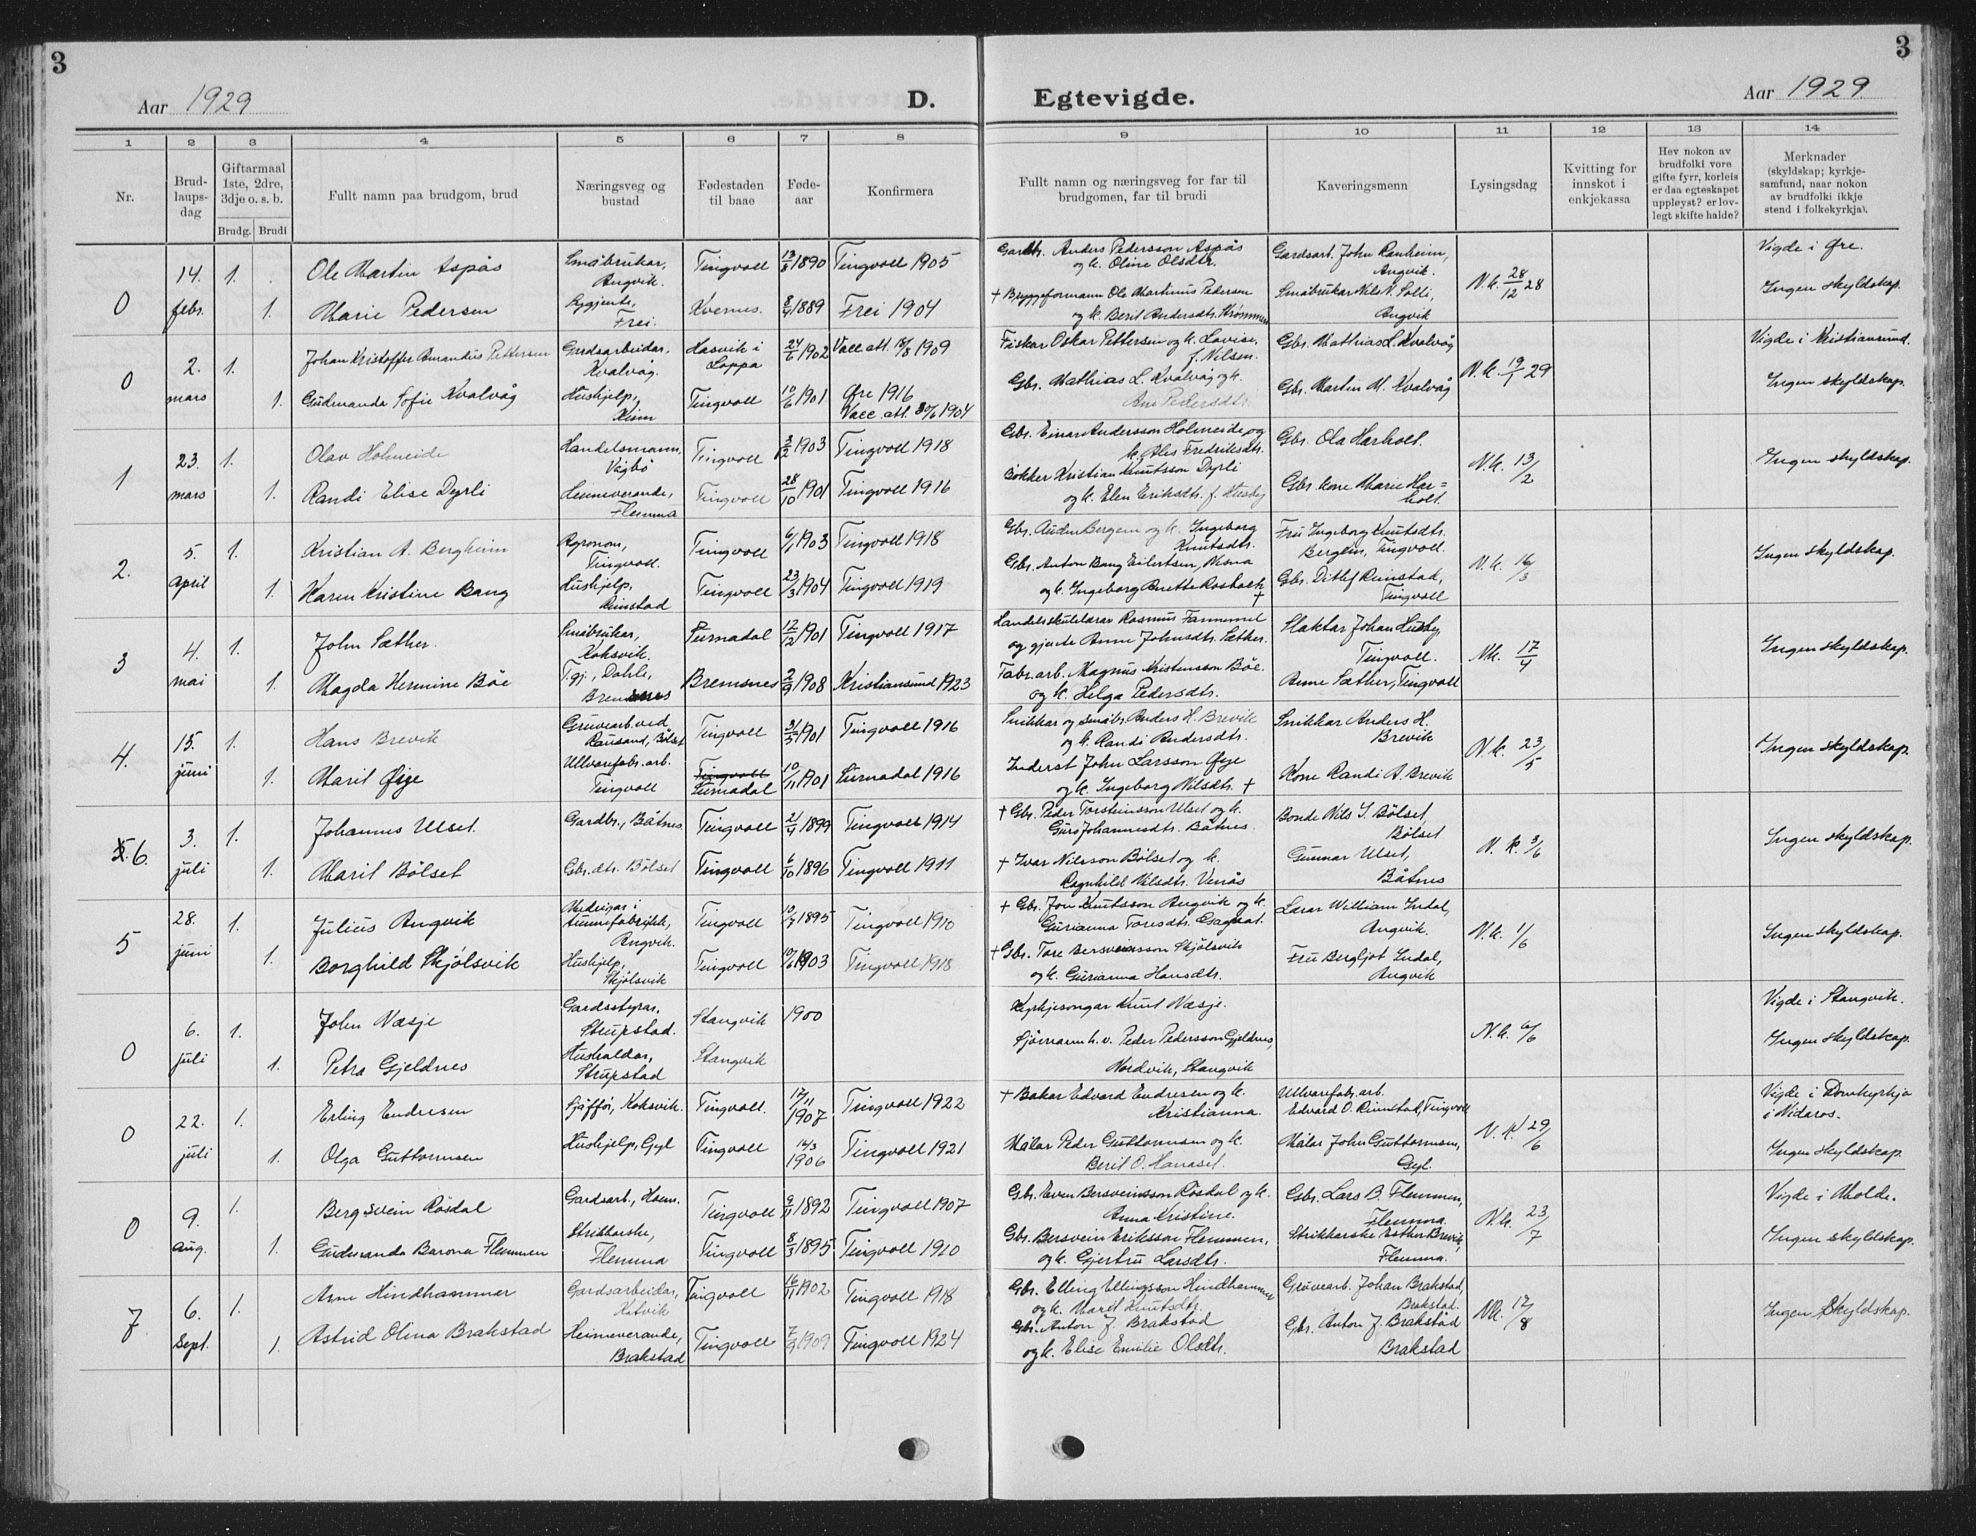 3
3
Aar 1929
D.
Egtevigde.
Aar 1929
1 2 3 4 5 6 7 8 9 10 11 12 13 14
Nr.
Brud-
laups-
dag
Giftarmaal
1ste, 2dre,
3dje o. s. b.
Brudg. Brudi
Fullt namn paa brudgom, brud
Næringsveg og
bustad
Fødestaden
til baae
Føde-
aar
Konfirmera
Fullt namn og næringsveg for far til
brudgomen, far til brudi
Kaveringsmenn
Lysingsdag
Kvitting for
innskot i
enkjekassa
Hev nokon av
brudfolki vore
gifte fyrr, korleis
er daa egteskapet
uppløyst? er lov-
legt skifte halde?
Merknader
(skyldskap; kyrkje-
samfund, naar nokon
av brudfolki ikkje
stend i folkekyrkja).
0
14. febr.
1. Ole Martin Aspås
Småbrukar,
Angvik.
Tingvoll 13/8 1890 Tingvoll 1905
Gardbr. Anders Pedersson Aspås
og k. Oline Olsdtr.
Gardsarb. John Ranheim,
Angvik.
N.k. 28/12 28
Vigde i Øre.
1. Marie Pedersen
Frei.
Kvernes. 8/4 1889 Frei 1904
+ Bryggeformann Ole Martinus Pedersen
og k. Berit Andersdtr. Strømmen
Småbrukar Nils N. Solli,
Angvik
Ingen skyldskap.
0
2. mars
1. Johan Kristoffer Amandus Pettersen
Gardsarbeidar,
Kvalvåg.
Hasvik i
Loppa
24/6 1902 Vacc. att. 18/8 1909
Fiskar Oskar Pettersen og k. Lovise,
f. Nilsen.
Gbr. Mathias L. Kvalvåg
N.k. 19/1 29
Vigde i Kristiansund.
1. Gudmanda Sofie Kvalvåg
Hushjelp,
Heim
Tingvoll 10/6 1901 Øre 1916
Vacc. att. 30/6 1904
Gbr. Mathias L. Kvalvåg og k.
Ane Pedersdtr.
Gbr. Martin M. Kvalvåg
Ingen skyldskap.
1
23. mars
1. Olav Holmeide
Handelsmann,
Vågbø
Tingvoll 3/2 1903 Tingvoll 1918
Gbr. Einar Andersson Holmeide og
k. Ales Fredriksdtr.
Gbr. Ola Harholt.
N.k. 13/2
Ingen skyldskap.
1. Randi Elise Dyrli
Heimeverande,
Flemma
Tingvoll 28/10 1901 Tingvoll 1916
Bøkker Kristian Knutsson Dyrli
og k. Elen Eriksdtr. f. Husby
Gbr. kone Marie Har=
holt.
2.
5. April
1. Kristian A. Bergheim
Agronom,
Tingvoll.
Tingvoll 6/1 1903 Tingvoll 1918
Gbr. Auden Bergem og k. Ingeborg
Knutsdtr.
Fru Ingeborg Knutsdtr.
Bergem, Tingvoll.
N.k. 16/3
Ingen skyldskap.
1. Karen Kristine Bang
Hushjelp,
Rimstad
Tingvoll 23/3 1904 Tingvoll 1919
Gbr. Anton Bang Eilertsen, Nesna
og k. Ingeborg Anette Rosbakk +
Gbr. Ditlef Rimstad,
Tingvoll
3
4. mai
1. John Sæther.
Småbrukar,
Koksvik.
Surnadal 17/12 1901 Tingvoll 1917
Landelskulelærar Rasmus Fannemel
og gjente Anne Johnsdtr. Sæther.
Slaktar Johan Husby,
Tingvoll.
N.k. 17/4
Ingen skyldskap.
1. Magda Hermine Böe
T.gj., Dahle,
Bremsnes
Bremsnes 2/9 1908 Kristiansund 1923
Fabr. arb. Magnus Kristensson Böe.
og k. Helga Pedersdtr.
Anne Sæther, Tingvoll
4.
15. juni
1. Hans Brevik
Gruvearb. ved
Rausand, Bölset
Tingvoll 31/5 1901 Tingvoll 1916
Snikkar og småbr. Anders H. Brevik
og k. Randi Andersdtr.
Snikkar Anders H.
Brevik
N.k. 23/5
Ingen skyldskap.
1. Marit Øye
Ullvarefabr. arb.
Tingvoll
Tingvoll
Surnadal 10/11 1901 Surnadal 1916
Inderst John Larsson Øye
og k. Ingeborg Nilsdtr. +
Kone Randi A. Brevik
5. 6.
3. juli
1. Johannes Ulset.
Gardbr., Båtnes
Tingvoll 21/4 1899 Tingvoll 1914
+ Gbr. Peder Torsteinsson Ulset og k.
Guro Johannesdtr. Båtnes.
Bonde Nils I. Bölset,
Bölset
N.k. 3/6
Ingen skyldskap.
1. Marit Bölset
Gbr. dtr. Bölset
Tingvoll 6/10 1896 Tingvoll 1911
+ Ivar Nilsson Bölset og k.
Ragnhild Nilsdtr. Venås
Gunnar Ulset,
Båtnes
5
28. juni
1. Julius Angvik
Medeigar i
tunnefabrikk,
Angvik.
Tingvoll 10/7 1895 Tingvoll 1910
+ Gbr. Jon Knutsson Angvik og k.
Gurianna Toresdtr.
Lærar William Indal,
Angvik.
N.k. 1/6
Ingen skyldskap.
1. Borghild Skjölsvik
Hushjelp,
Skjölsvik
Tingvoll 10/6 1903 Tingvoll 1918
+ Gbr. Tore Bersveinsson Skjölsvik
og k. Gurianna Hansdtr.
Fru Bergljot Indal,
Angvik
0
6. juli
1. John Næsje
Gardsstyrar,
Strupstad.
Stangvik 1900
Kyrkjesongar Knut Næsje.
N.k. 6/6
Vigde i Stangvik.
1. Petra Gjeldnes
Hushaldar,
Strupstad
Stangvik
Sjømann h.v. Peder Pedersson Gjeldnes,
Nordvik, Stangvik
Ingen skyldskap.
0
22. juli
1. Erling Endresen
Sjåffør, Koksvik.
Tingvoll. 17/11 1907 Tingvoll 1922
+ Bakar Edvard Endresen og k.
Kristianna.
Ullvarefab. arb.
Edvard O. Rimstad, Tingvoll
N.k. 29/6
Vigde i Domkyrkja
i Nidaros.
1. Olga Guttormsen
Hushjelp, Gyl
Tingvoll 16/3 1906 Tingvoll 1921
Målar Peder Guttormsen og k.
Berit O. Hanaset.
Målar John Guttormsen,
Gyl.
Ingen skyldskap.
0
9. aug.
1. Bergsvein Rösdal
Gardsarb., Hoem.
Tingvoll 9/11 1892 Tingvoll 1907
Gbr. Even Bersveinsson Rösdal og k.
Anna Kristine.
Gbr. Lars B. Flemmen,
Flemma.
N.k. 23/7
Vigde i Molde.
1. Gudmanda Barona Flemmen
Strikkarske,
Flemma
Tingvoll 8/3 1895 Tingvoll 1910
Gbr. Bersvein Eriksson Flemmen,
og k. Gjertru Larsdtr.
Strikkarske Esther Brevik,
Flemma.
Ingen skyldskap.
7
6. Sept.
1. Arne Hindhammer
Gardsarbeidar,
Hatvik
Tingvoll 16/11 1902 Tingvoll 1918
Gbr. Elling Ellingsson Hindhammer
og k. Maret Knutsdtr.
Gruvearb. Johan Brakstad,
Brakstad.
N.k. 17/8
Ingen Skyldskap.
1. Astrid Olina Brakstad
Heimeverande,
Brakstad
Tingvoll 7/9 1909 Tingvoll 1924
Gbr. Anton J. Brakstad
og k. Elise Emilie Olsdtr.
Gbr. Anton J. Brakstad
Brakstad